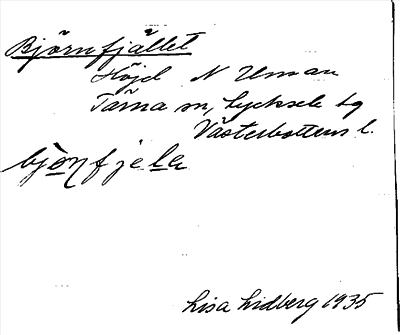 Björnfjället
Höjd N Uman
Tärna sn, Lycksele lg
Västerbottens l.
bjònfjela
Lisa Lidberg 1935